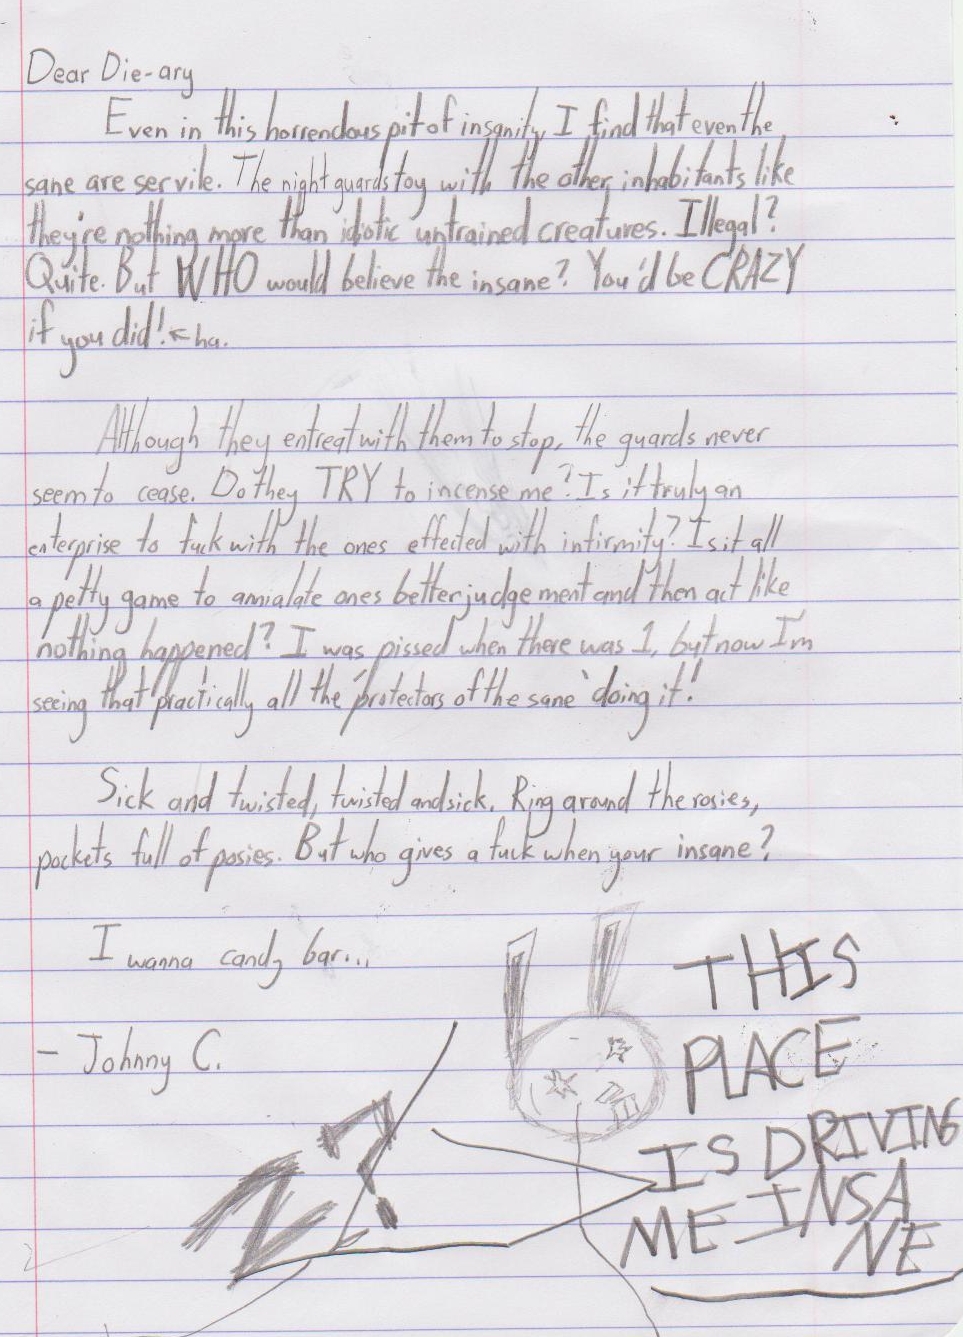 Dear Die-ary
Even in this horrendous pit of insanity, I find that even the
sane are servile. The night guards toy with the other inhabitants like
they're nothing more than idiotic untrained creatures. Illegal?
Quite. But WHO would believe the insane? You'd be CRAZY
if you did! ← ha.
Although they entreat with them to stop, the guards never
seem to cease. Do they TRY to incense me? Is it truly an
enterprise to fuck with the ones effected with infirmity? Is it all
a petty game to amialate ones better judgement and then act like
nothing happened? I was pissed when there was 1, but now I'm
seeing that practically all the 'protectors of the sane' doing it!
Sick and twisted, twisted and sick. Ring around the rosies,
pockets full of posies. But who gives a fuck when your insane?
I wanna candy bar...
- Johnny C.
Z?
THIS
PLACE
IS DRIVING
ME INSA
NE